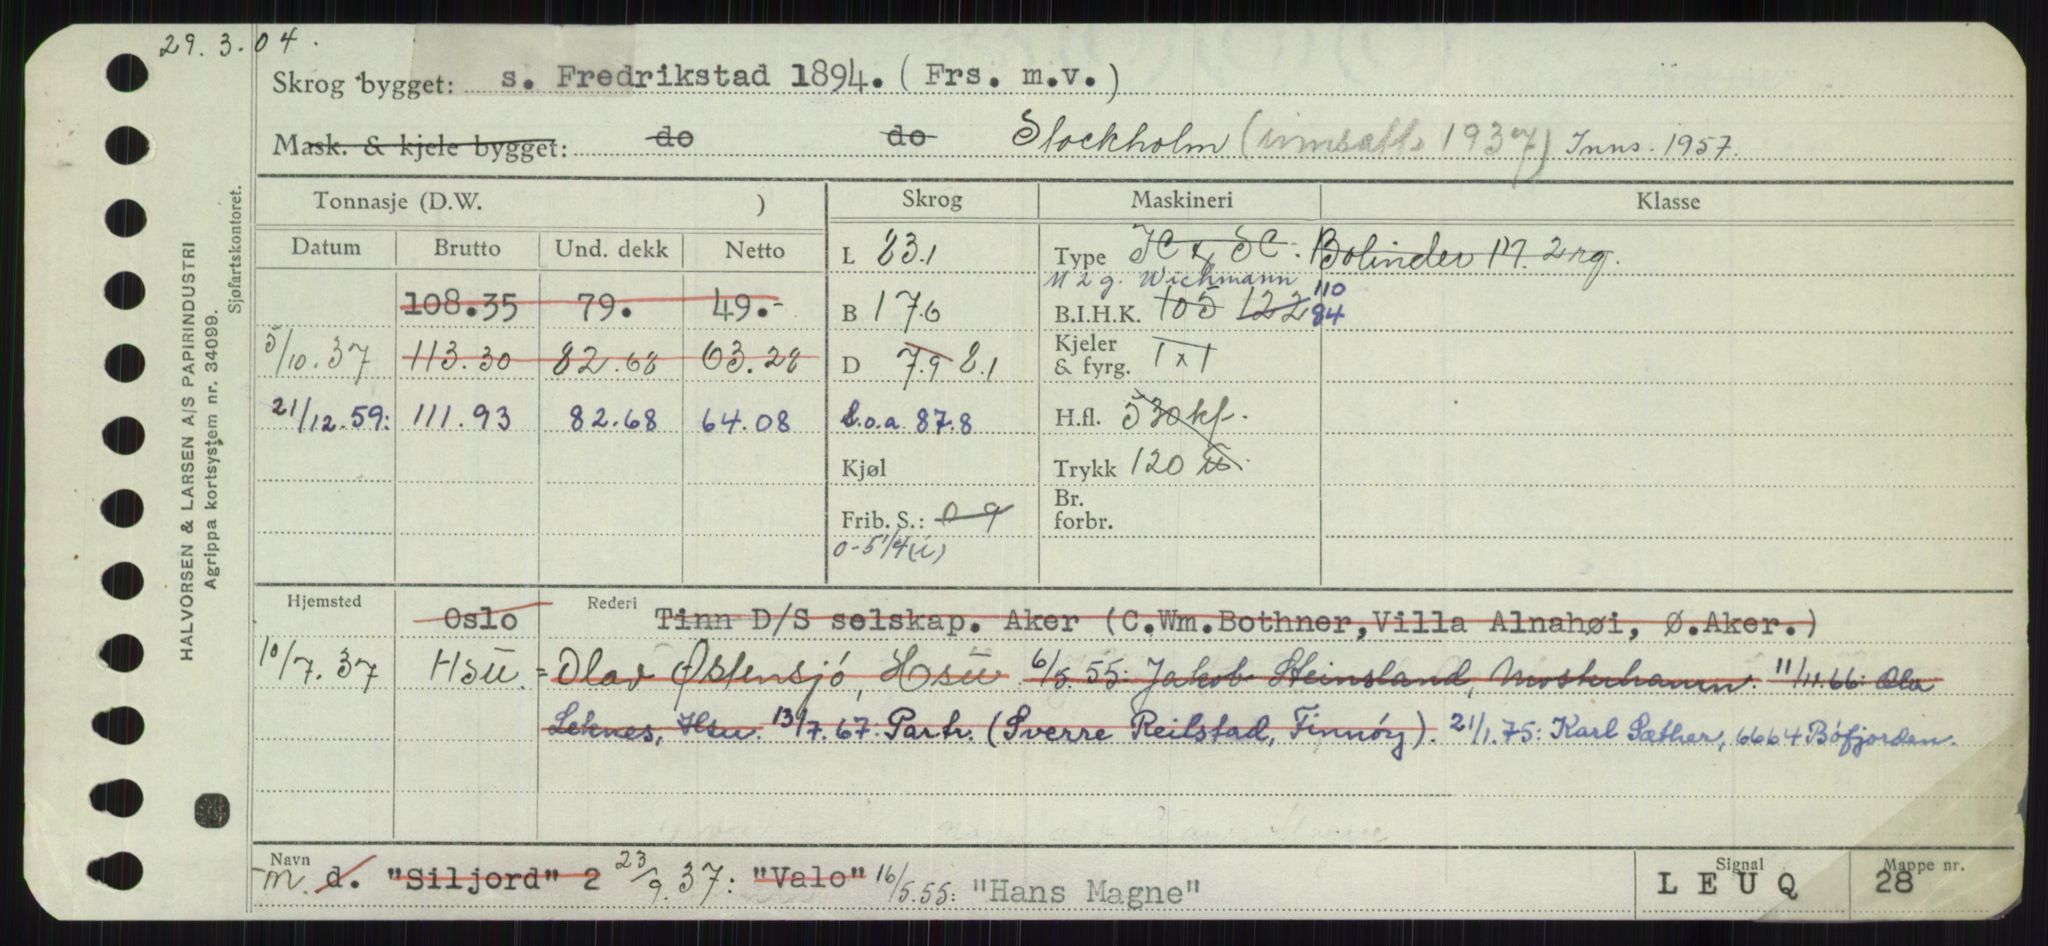 29.3.04.
Skrog bygget: s. Fredrikstad 1894. ( Frs. m.v. )
Mask. & kjele bygget: do do Stockholm (innsatt 1937) Inns. 1957.
Tonnasje (D.W. ) Skrog Maskineri Klasse
Datum Brutto Und. dekk Netto L 83.1 Type Bolinder M. 2 rg.
M 2 g. Wichmann
108.35 79. 49.- B 17.6 B.I.H.K. 105 122 110 84
5/10.37 113.30 82.68 63.28 D 7.9 8.1 Kjeler & fyrg. 1 x 1
21/12.59: 111.93 82.68 64.08 L.o.a. 87.8 H.fl. 530 kf.
Kjøl Trykk 120
Frib. S.: 0 9 Br. forbr.
0-5 1/4 (i)
Hjemsted Oslo Rederi Tinn D/S selskap. Aker (C.Wm.Bothner,Villa Alnahøi, Ø.Aker.)
10/7.37 Hsu. = Olav Østensjó, Hsu 6/5.55: Jakob Steinsland, Mosterhamn. 11/11.66: Ola
Leknes, Hsu. 13/7.67: Partr. (Sverre Reilstad, Finnóy). 21/1.75: Karl Sæther, 6664 Bófjorden.
Navn m. d. "Siljord" 2 23/9.37: "Valo" 16/5.55: "Hans Magne" Signal L E U Q Mappe nr. 28
HALVORSEN & LARSEN A/S PAPIRINDUSTRI
Agrippa kortsystem nr. 34099.
Sjøfartskontoret.